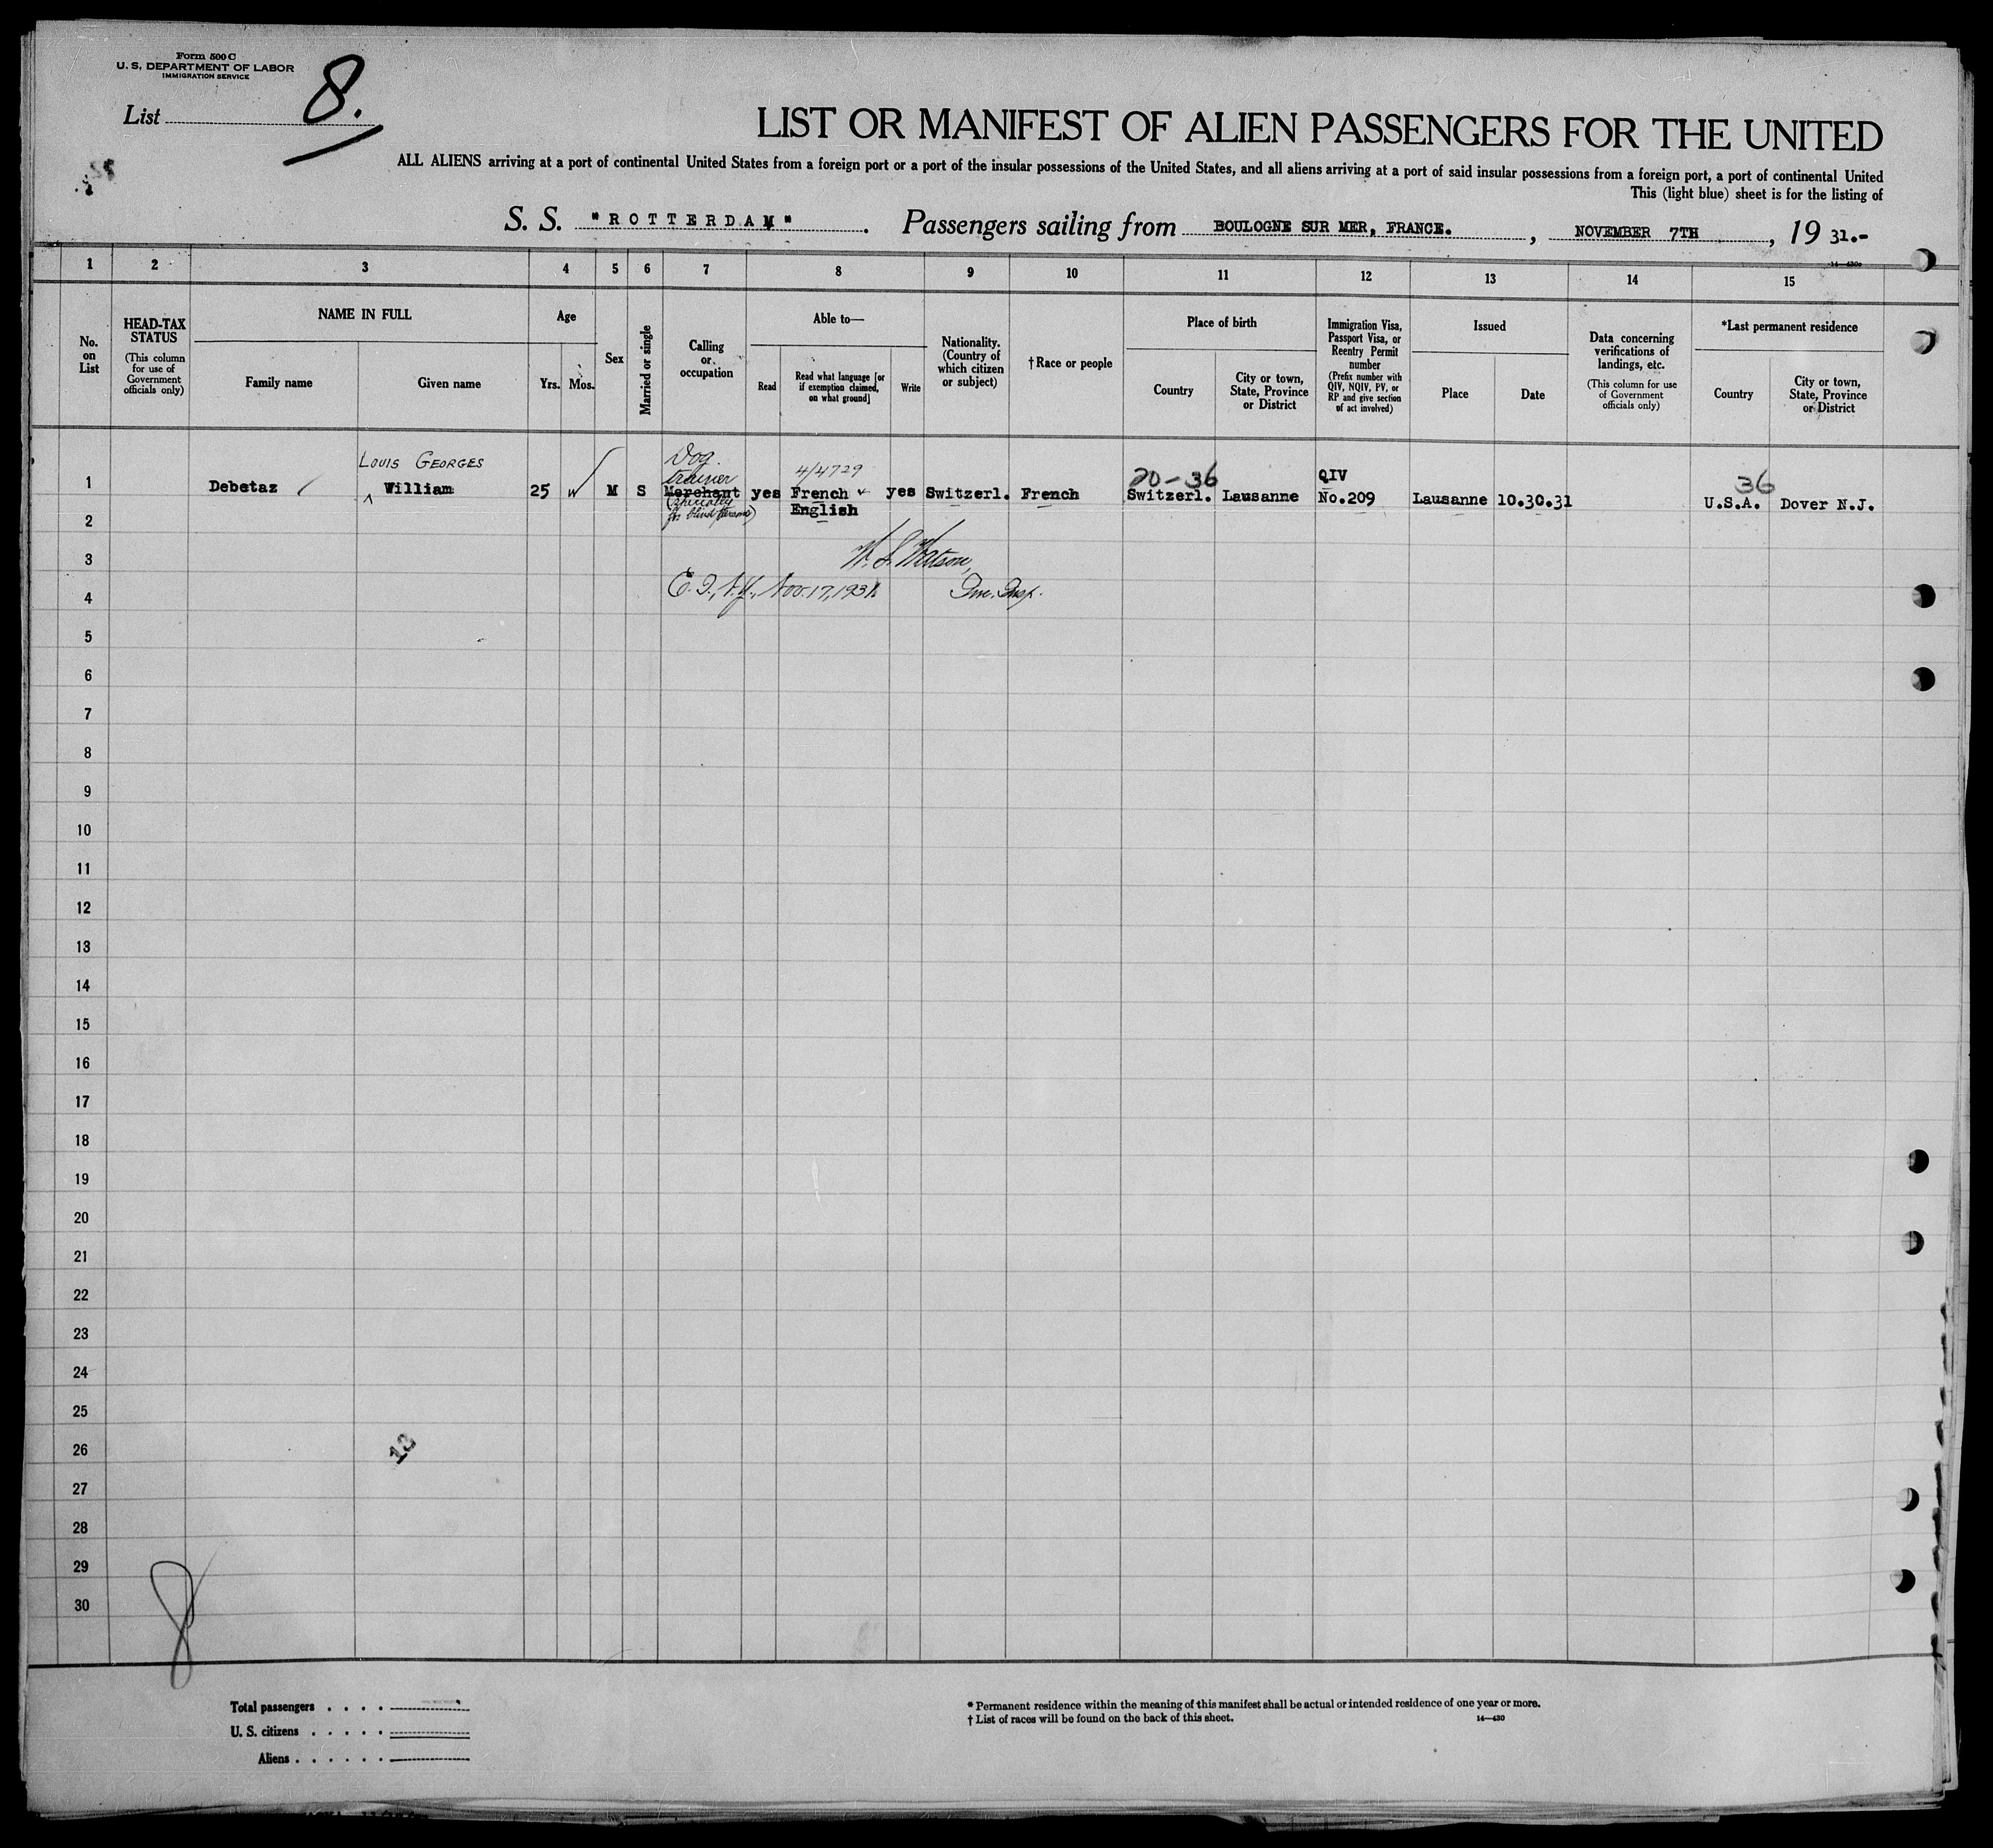 Form 500 C
U. S. DEPARTMENT OF LABOR
IMMIGRATION SERVICE
List 8.
LIST OR MANIFEST OF ALIEN PASSENGERS FOR THE UNITED
ALL ALIENS arriving at a port of continental United States from a foreign port or a port of the insular possessions of the United States, and all aliens arriving at a port of said insular possessions from a foreign port, a port of continental United
This (light blue) sheet is for the listing of
S. S. "ROTTERDAM". Passengers sailing from BOULOGNE SUR MER, FRANCE., NOVEMBER 7TH, 19 31.-
14-430
1 2 3 4 5 6 7 8 9 10 11 12 13 14 15
No. on List
HEAD-TAX STATUS
(This column for use of Government officials only)
NAME IN FULL
Family name
Given name
Age
Yrs.
Mos.
Sex
Married or single
Calling or occupation
Able to—
Read
Read what language [or if exemption claimed, on what ground]
Write
Nationality. (Country of which citizen or subject)
†Race or people
Place of birth
Country
City or town, State, Province or District
Immigration Visa, Passport Visa, or Reentry Permit number
(Prefix number with QIV, NQIV, PV, or RP and give section of act involved)
Issued
Place
Date
Data concerning verifications of landings, etc.
(This column for use of Government officials only)
*Last permanent residence
Country
City or town, State, Province or District
LOUIS GEORGES
Dog trainer
4/4729
20-36
QIV
36
1 Debetaz William 25 M S Merchant yes French yes Switzerl. French Switzerl. Lausanne No.209 Lausanne 10.30.31 U.S.A. Dover N.J.
for blind English
2
W. S. Watson,
3
E. I., N.Y., Nov. 17, 1931 Imm. Insp.
4
5
6
7
8
9
10
11
12
13
14
15
16
17
18
19
20
21
22
23
24
25
26
13
27
28
29
30
8
Total passengers . . . .
U. S. citizens . . . . .
Aliens . . . . . .
* Permanent residence within the meaning of this manifest shall be actual or intended residence of one year or more.
† List of races will be found on the back of this sheet.
14—430